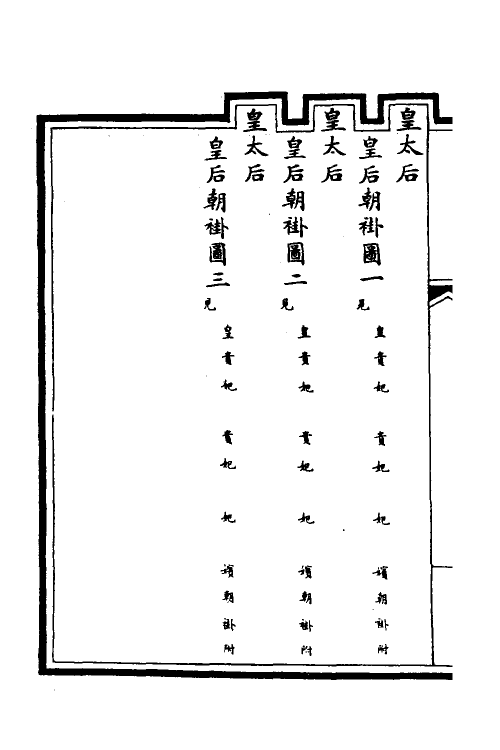 皇太后
皇后朝褂圖一
皇貴妃 貴妃 妃 嬪朝褂附
見
皇太后
皇后朝褂圖二
皇貴妃 貴妃 妃 嬪朝褂附
見
皇太后
皇后朝褂圖三
皇貴妃 貴妃 妃 嬪朝褂附
見